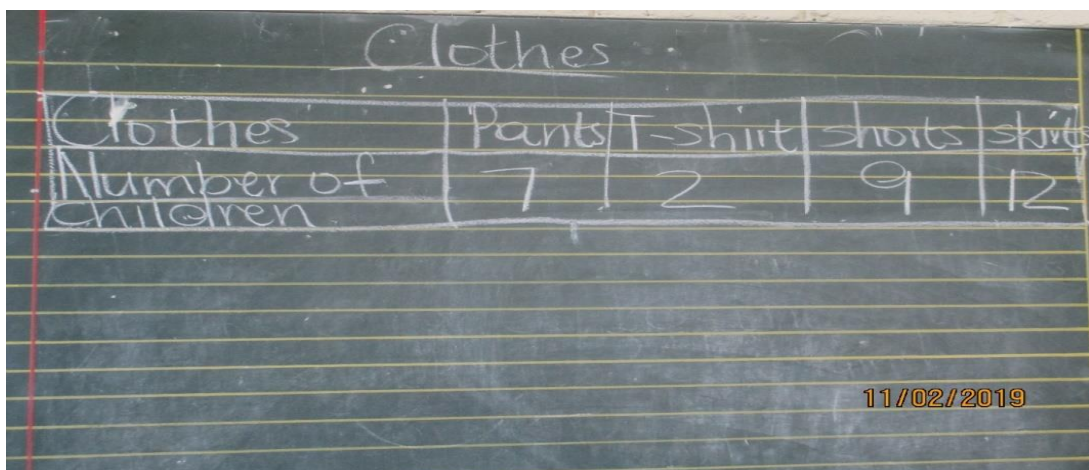 Clothes
Clothes Pants T-shirt shorts skirts
Number of children 7 2 9 12
11/02/2019